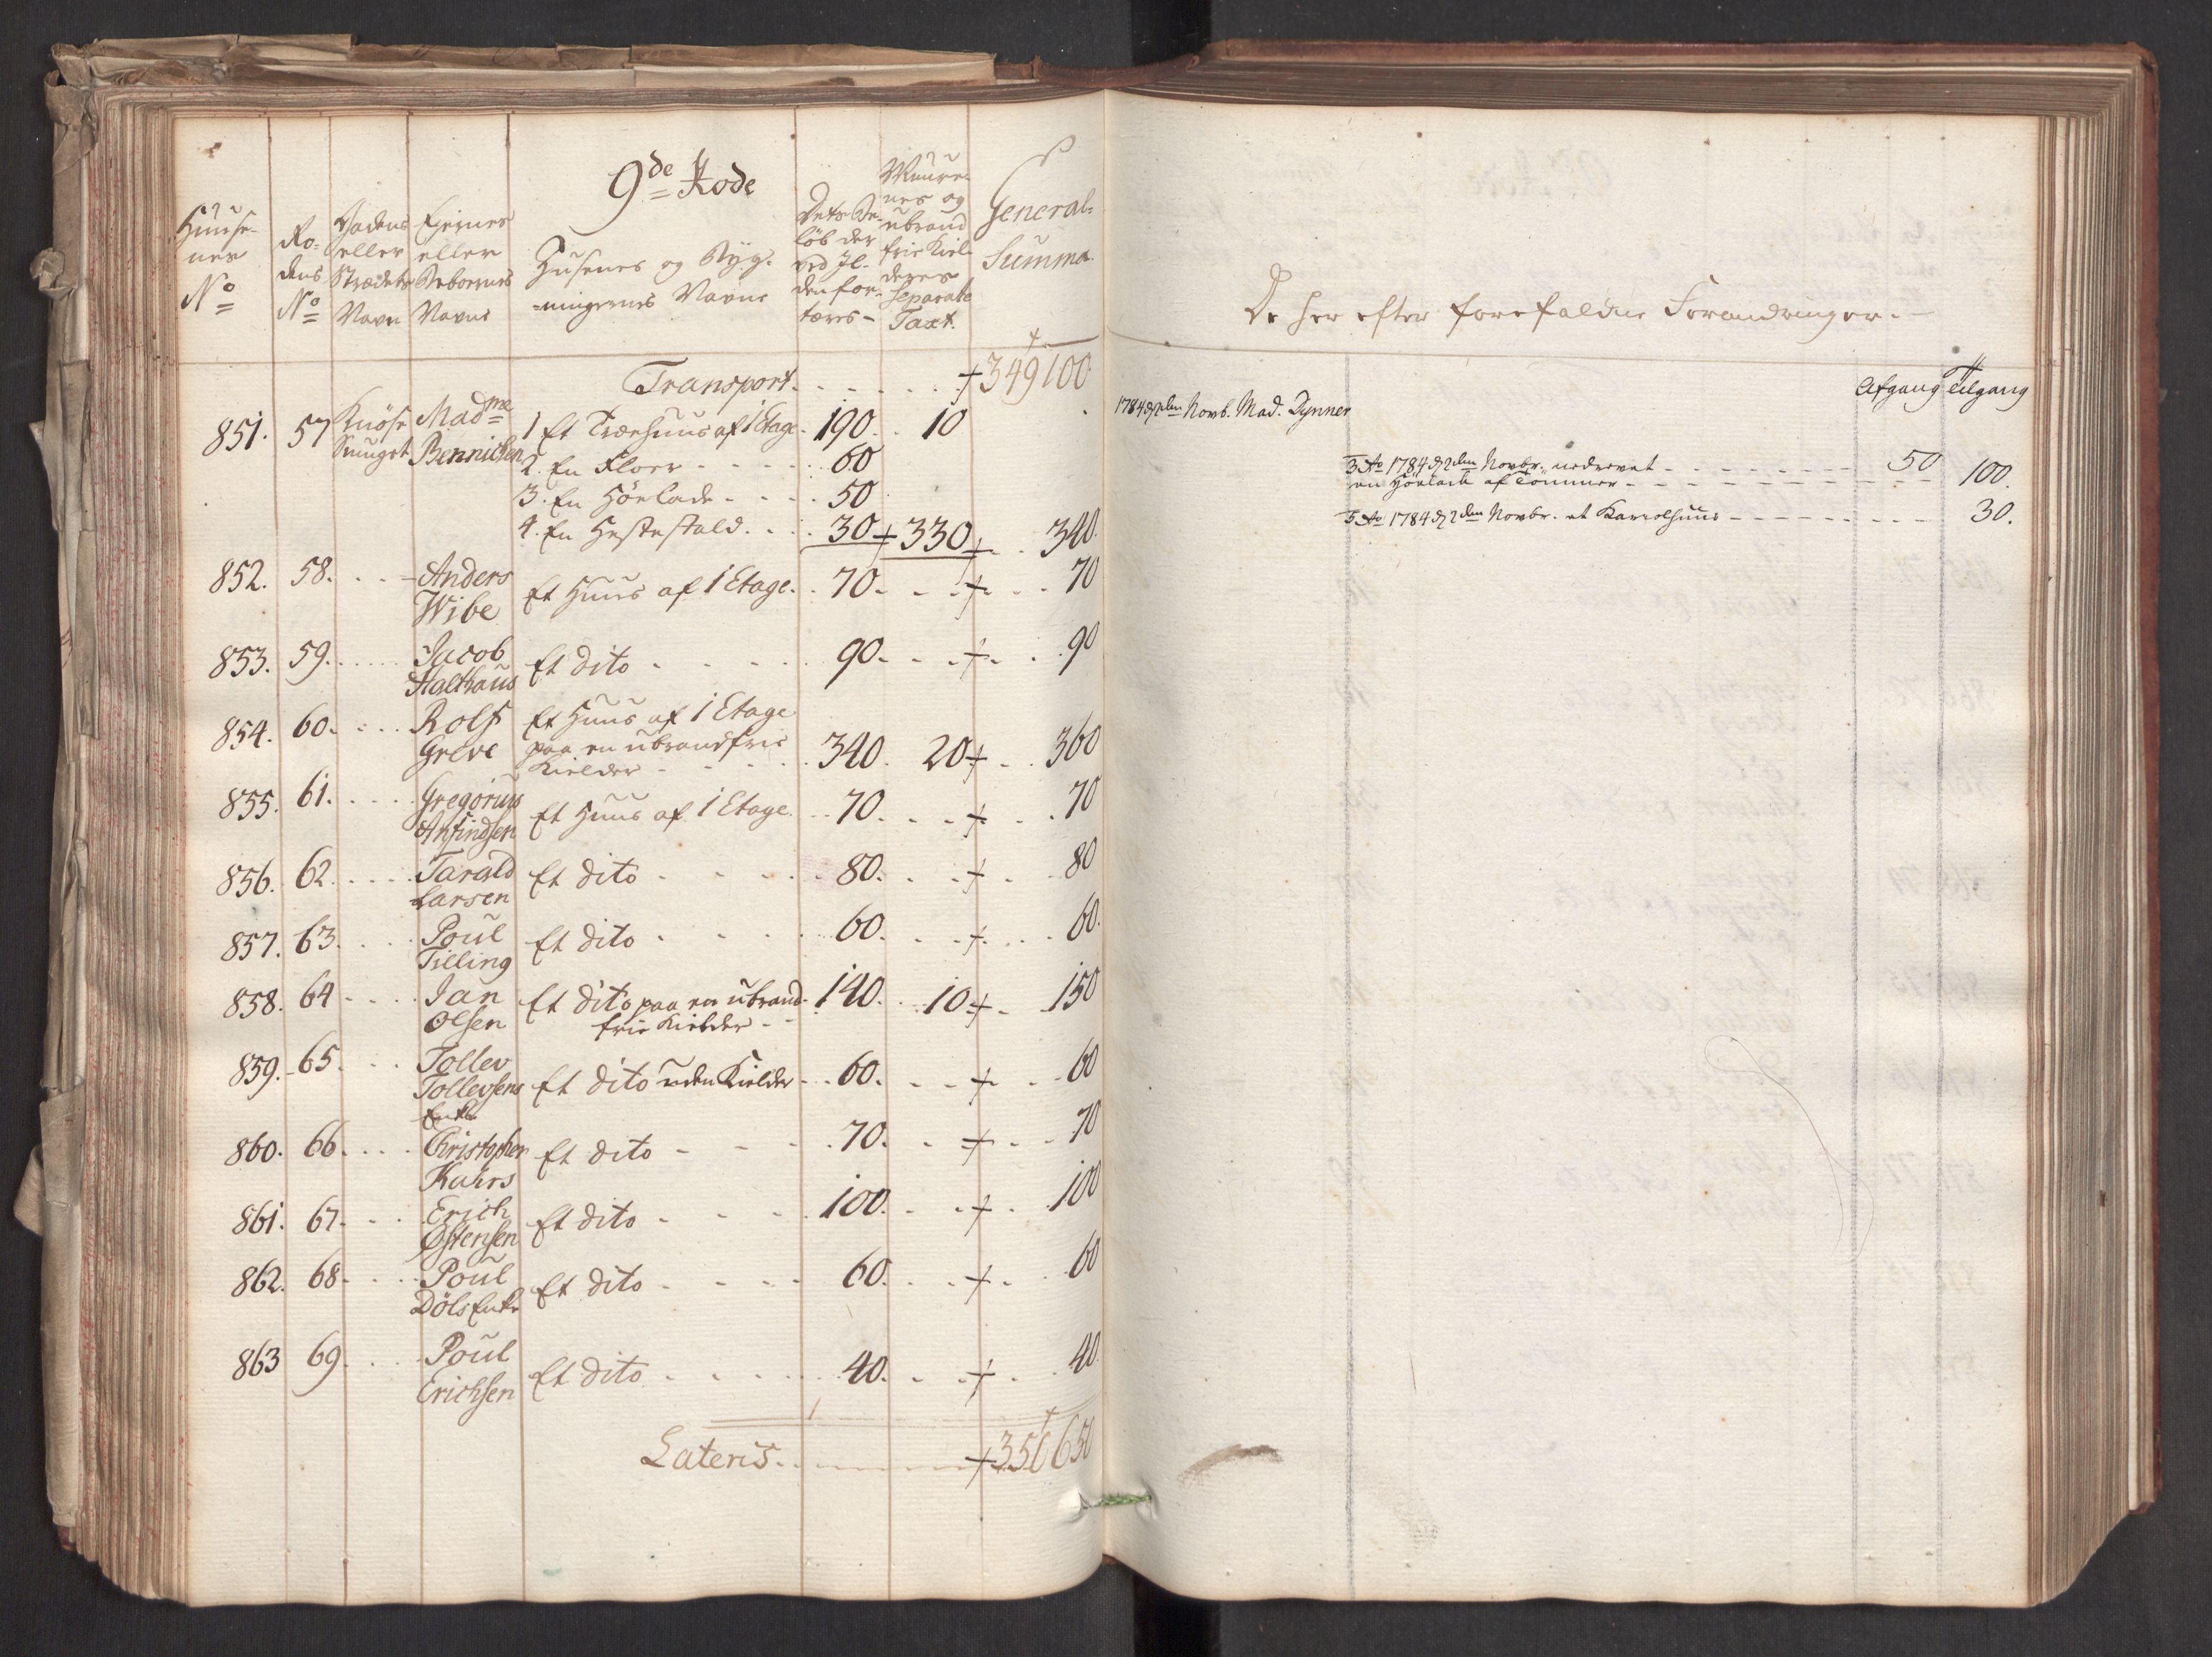 9de Rode
Huuse-
nes
No
Ro-
dens
No
Gadens
eller
Strædets
Navn
Ejernes
eller
Beboernes
Navne
Husenes og Byg-
ningernes Navne
Dets Be-
løb der
ved Il-
den for-
tæres
Muure-
nes og
ubrand
frie Kiel-
deres
Separate
Taxt.
General-
Summa
Transport. 349100
851. 57 Knöse Smuget Madme Bennichen 1 Et Træehuus af 1 Etage 190. 10
2. En Floer 60
3. En Höelade 50
4. En Hestestald 30 330 340
852. 58. Anders Wibe Et Huus af 1 Etage. 70. 70
853. 59. Jacob Halthaus Et dito 90. 90
854. 60. Rolf Greve Et Huus af 1 Etage
paa en ubrandfrie
Kielder 340. 20 360
855. 61. Gregorius Anfindsen Et Huus af 1 Etage. 70. 70
856. 62. Tarald Larsen Et dito 80. 80
857. 63. Poul Tilling Et dito 60. 60.
858. 64 Jan Olsen Et dito paa en ubrand-
frie Kielder 140. 10 150
859. 65. Tollev Tollevsens Enke Et dito uden Kielder 60. 60
860. 66. Christopher Kahrs Et dito 70. 70
861. 67. Erich Østensen Et dito 100. 100
862. 68 Poul Döls Enke Et dito 60. 60
863 69. Poul Erichsen Et dito 40. 40.
Lateris. 350650
De her efter forefaldne Forandringer.
Afgang Tilgang
1784 d 2den Novb. Mad. Dynner
3 Ao 1784 d 2den Novbr. nedrevet 50
en Höelade af Tömmer 100.
5 Ao 1784 d 2den Novbr. et Kariolhuus 30.